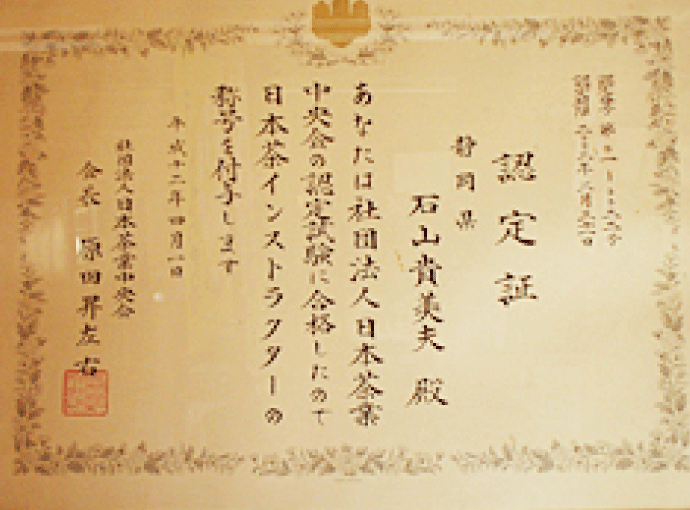 認定証
静岡県
石山貴美夫 殿
あなたは社団法人日本茶業
中央会の認定試験に合格したので
日本茶インストラクターの
称号を付与します
平成十二年四月一日
社団法人日本茶業中央会
会長 原田昇左右